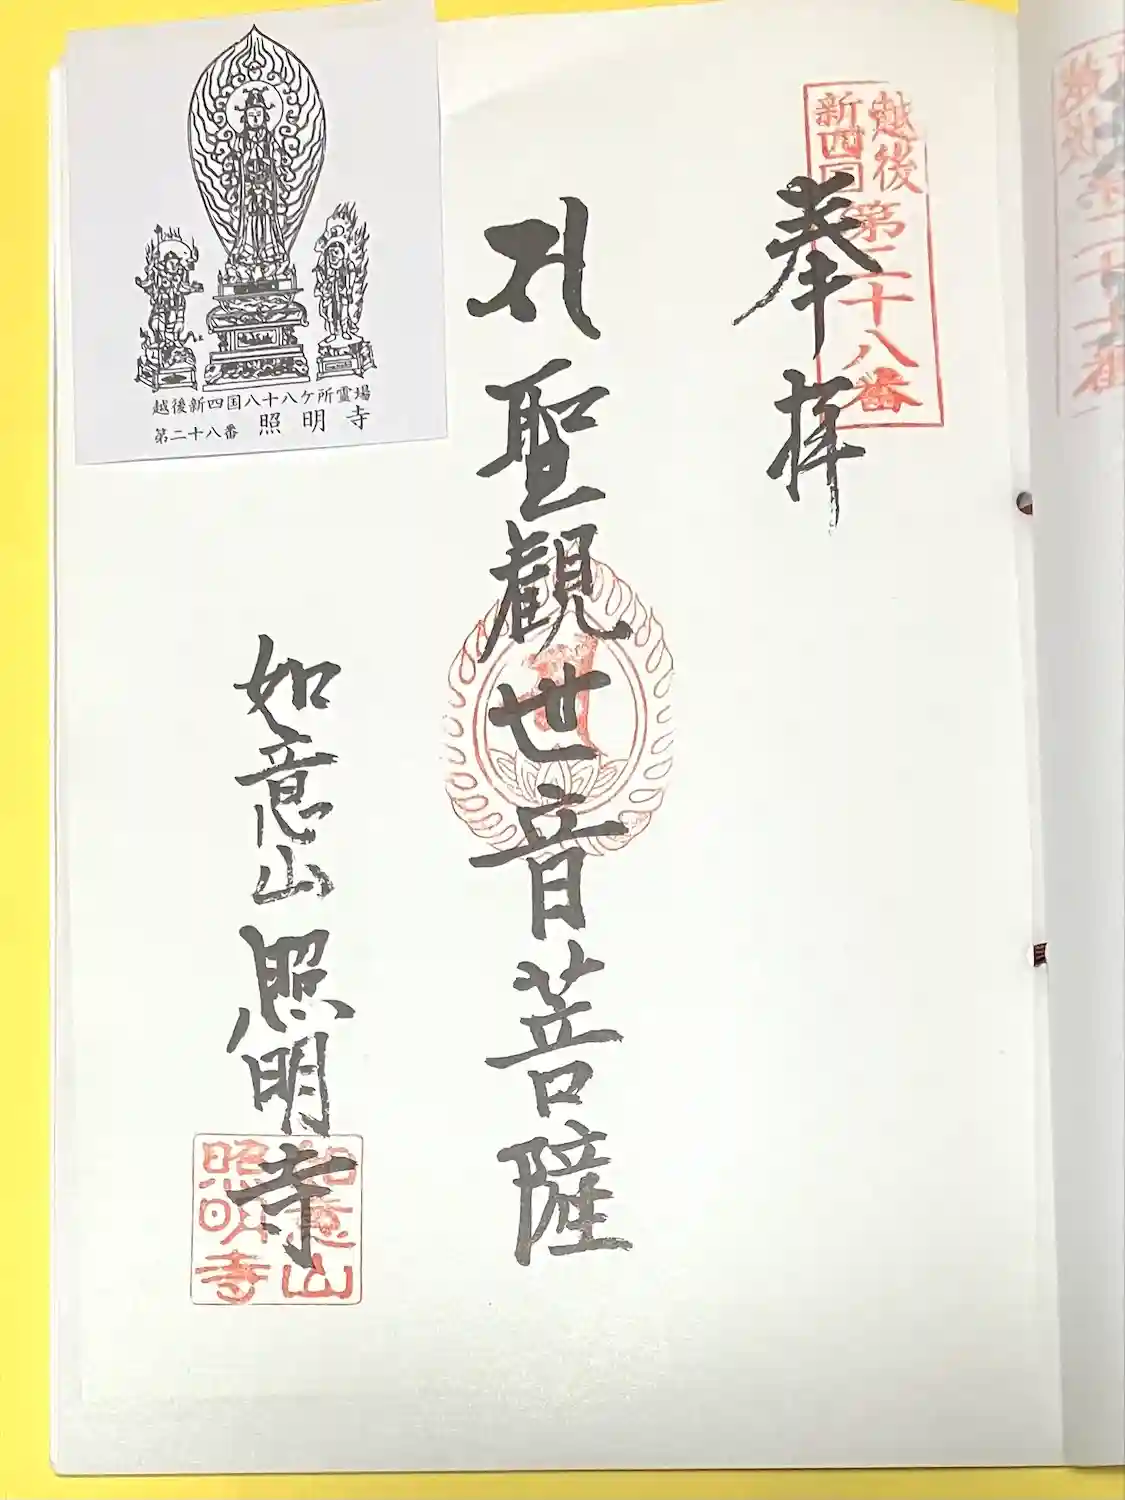 越後
新四国
第二十八番
奉拝
聖観世音菩薩
如意山照明寺
如意山
照明寺
越後新四国八十八ケ所霊場
第二十八番 照明寺